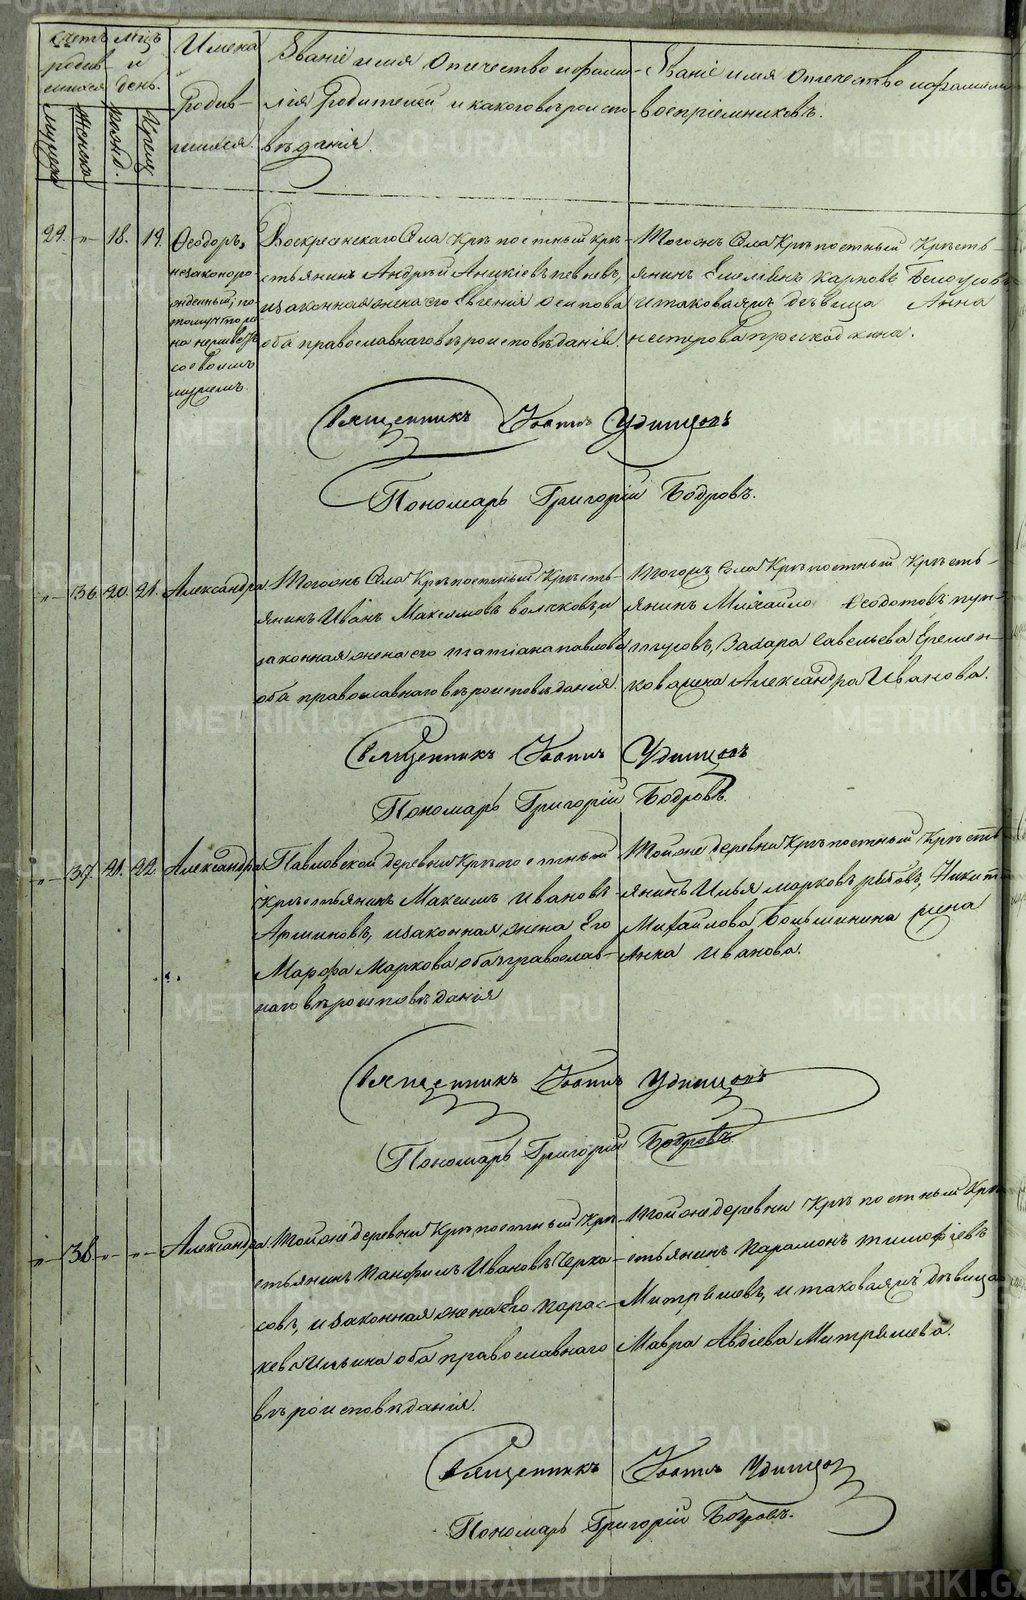 Счетъ родив- шихся
мцъ и день.
Имена Родив- шихся.
Званіе имя Отчество и фами-
лія Родителей и какого вѣроиспо-
вѣданія.
Званіе имя Отчество и фамилія
воспріемниковъ.
мужеска
женска
рожд.
Крещ.
29. " 18. 19. Ѳеодоръ,
незаконоро-
жденный; по-
тому что
она не живетъ
со своимъ
мужемъ.
Воскресенскаго Села Крѣпостный кре-
стьянинъ Андрей Аникіевъ Певневъ,
и законная жена его Евгенія Осипова
оба православнаго вѣроисповѣданія.
Тогожъ Села Крѣпостный Кресть-
янинъ Емеліянъ Карповъ Белоусовъ
и таковая дѣвица Анна
нестерова
Священникъ Іоаннъ Удинцовъ
Пономарь Григорій Бодровъ.
" 36. 20. 21. Александра
Тогожъ Села Крѣпостный Кресть-
янинъ Иванъ Максимовъ Волчковъ, и
законная жена его Татіана павлова
оба православнаго вѣроисповѣданія.
Тогожъ Села Крѣпостный Кресть-
янинъ Михайло Ѳеодотовъ пун-
тусовъ, Захара Савельева Еремен-
кова жена Александра Иванова.
Священникъ Іоаннъ Удинцовъ
Пономарь Григорій Бодровъ.
" 37. 21. 22. Александра
Павловской деревни Крѣпостный
Крестьянинъ Максимъ Ивановъ
Аршиновъ, и законная жена Его
Марфа Маркова оба православ-
наго вѣроисповѣданія
Той же деревни Крѣпостный Кресть-
янинъ Илья Марковъ Никит
Михайлова Большинина жена
Анна Иванова.
Священникъ Іоаннъ Удинцовъ
Пономарь Григорій Бодровъ
" 38. " " Александра
Той же деревни Крѣпостный Кре-
стьянинъ Панфилъ Ивановъ Черка-
совъ, и законная жена Его Парас-
кева Ильина оба православнаго
вѣроисповѣданія.
Той же деревни Крѣпостный Кре-
стьянинъ Парамонъ Тимофѣевъ
Митряшевъ, и таковая дѣвица
Мавра Авдіева Митряшева.
Священникъ Іоаннъ Удинцов
Пономарь Григорій Бодровъ.
METRIKI.GASO-URAL.RU